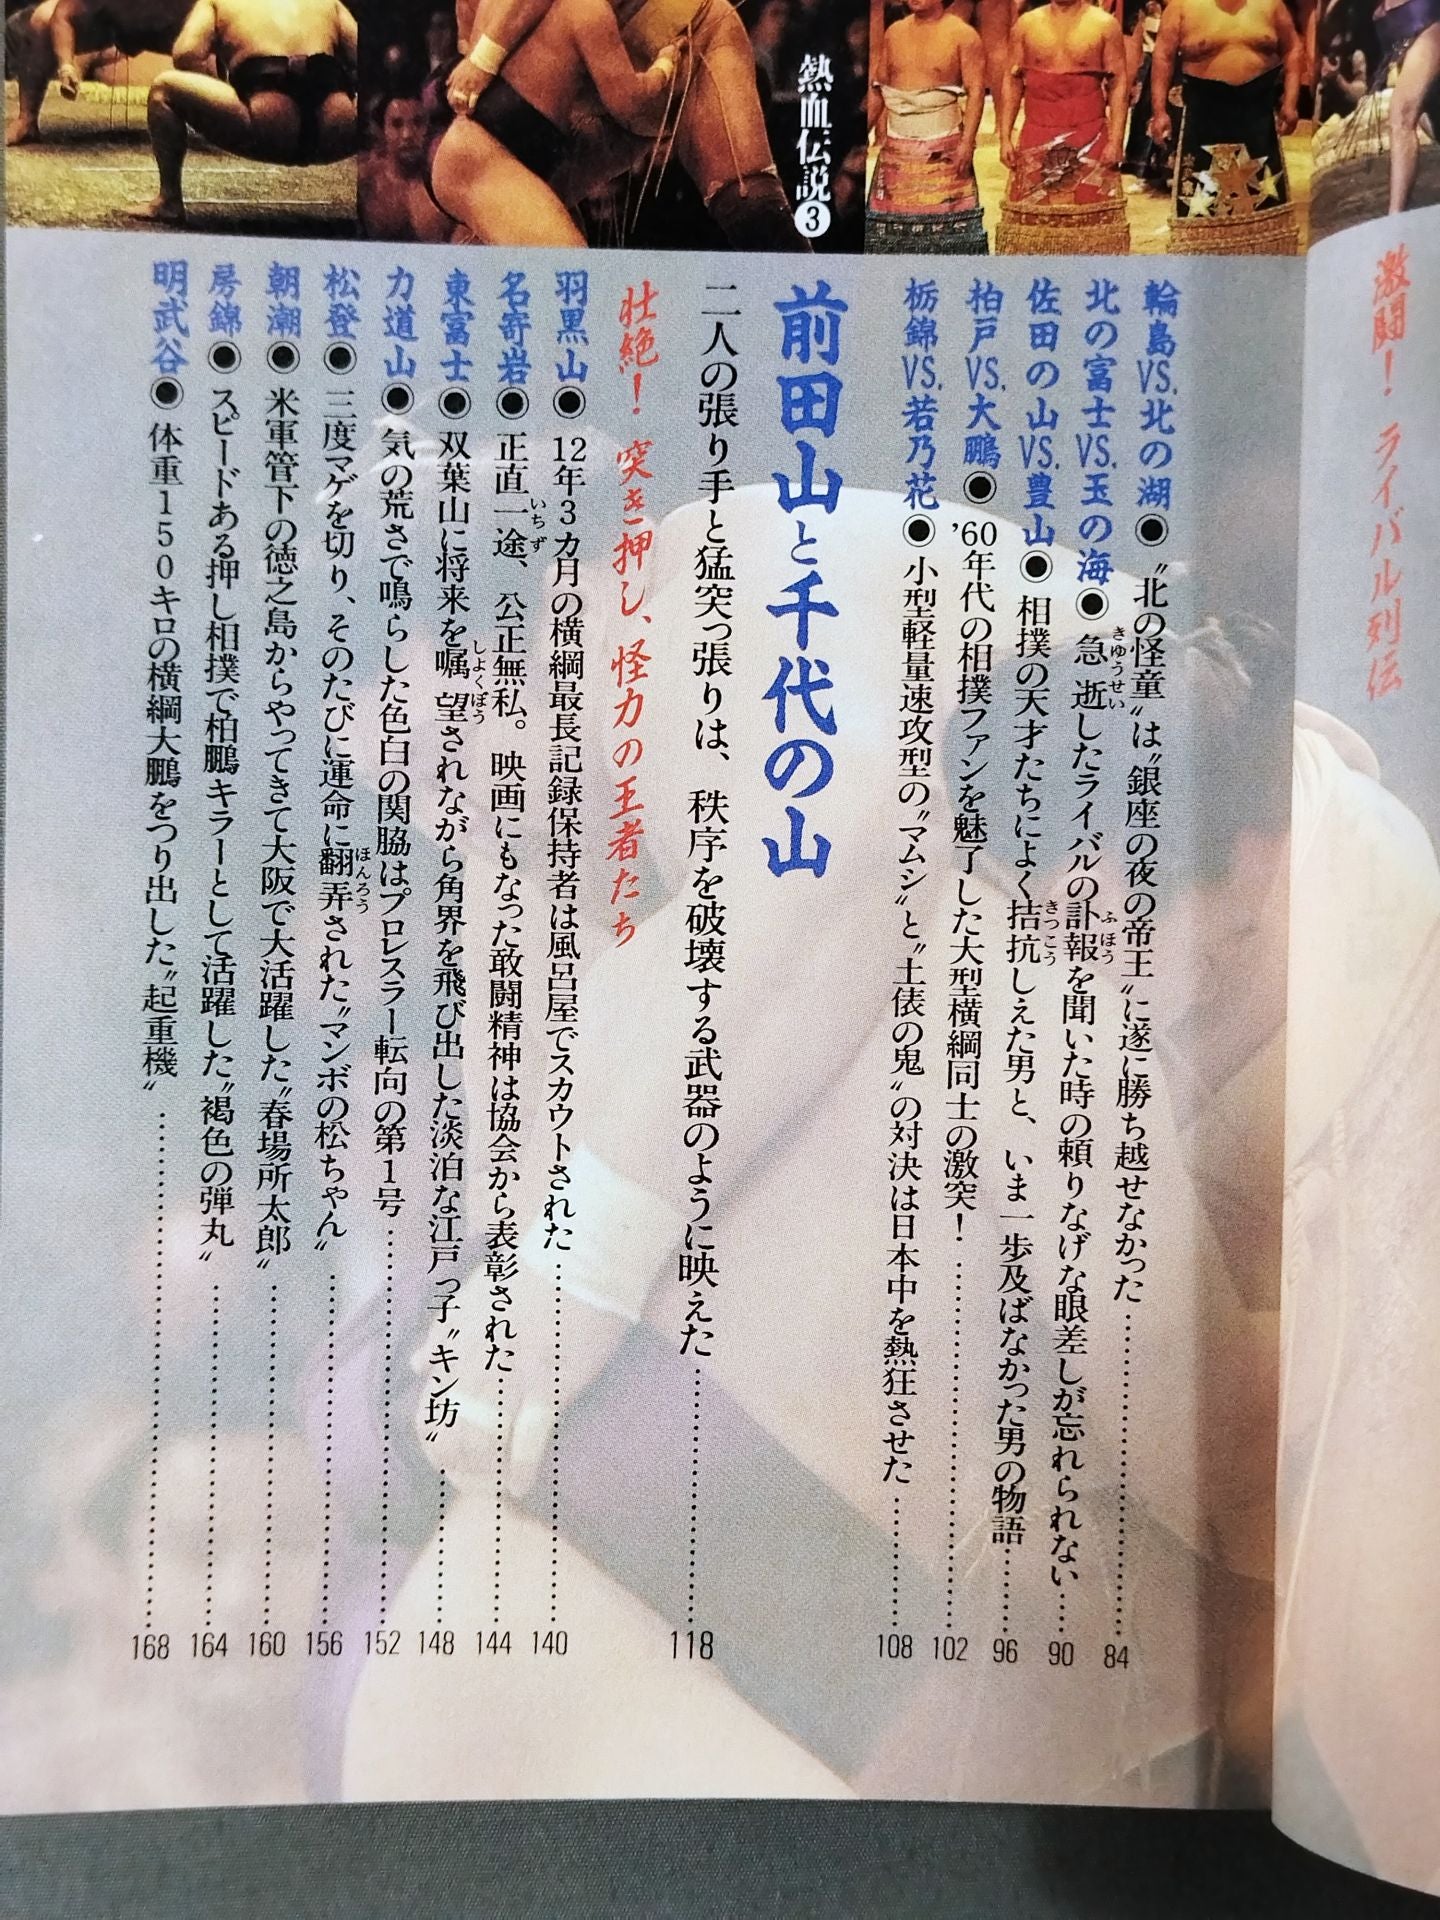 熱血伝説❸
激闘！ ライバル列伝
輪島VS.北の湖◉〝北の怪童〟は〝銀座の夜の帝王〟に遂に勝ち越せなかった………84
北の富士VS.玉の海◉急逝したライバルの訃報を聞いた時の頼りなげな眼差しが忘れられない………90
きゅうせい
ふほう
佐田の山VS.豊山◉相撲の天才たちによく拮抗しえた男と、いま一歩及ばなかった男の物語………96
きっこう
柏戸VS.大鵬◉'60年代の相撲ファンを魅了した大型横綱同士の激突！………102
栃錦VS.若乃花◉小型軽量速攻型の〝マムシ〟と〝土俵の鬼〟の対決は日本中を熱狂させた………108
前田山と千代の山
二人の張り手と猛突っ張りは、秩序を破壊する武器のように映えた………118
壮絶！ 突き押し、怪力の王者たち
羽黒山◉12年3カ月の横綱最長記録保持者は風呂屋でスカウトされた………140
名寄岩◉正直一途、公正無私。映画にもなった敢闘精神は協会から表彰された………144
いちず
東富士◉双葉山に将来を嘱望されながら角界を飛び出した淡泊な江戸っ子〝キン坊〟………148
しょくぼう
力道山◉気の荒さで鳴らした色白の関脇はプロレスラー転向の第1号………152
松登◉三度マゲを切り、そのたびに運命に翻弄された〝マンボの松ちゃん〟………156
ほんろう
朝潮◉米軍管下の徳之島からやってきて大阪で大活躍した〝春場所太郎〟………160
房錦◉スピードある押し相撲で柏鵬キラーとして活躍した〝褐色の弾丸〟………164
明武谷◉体重150キロの横綱大鵬をつり出した〝起重機〟………168